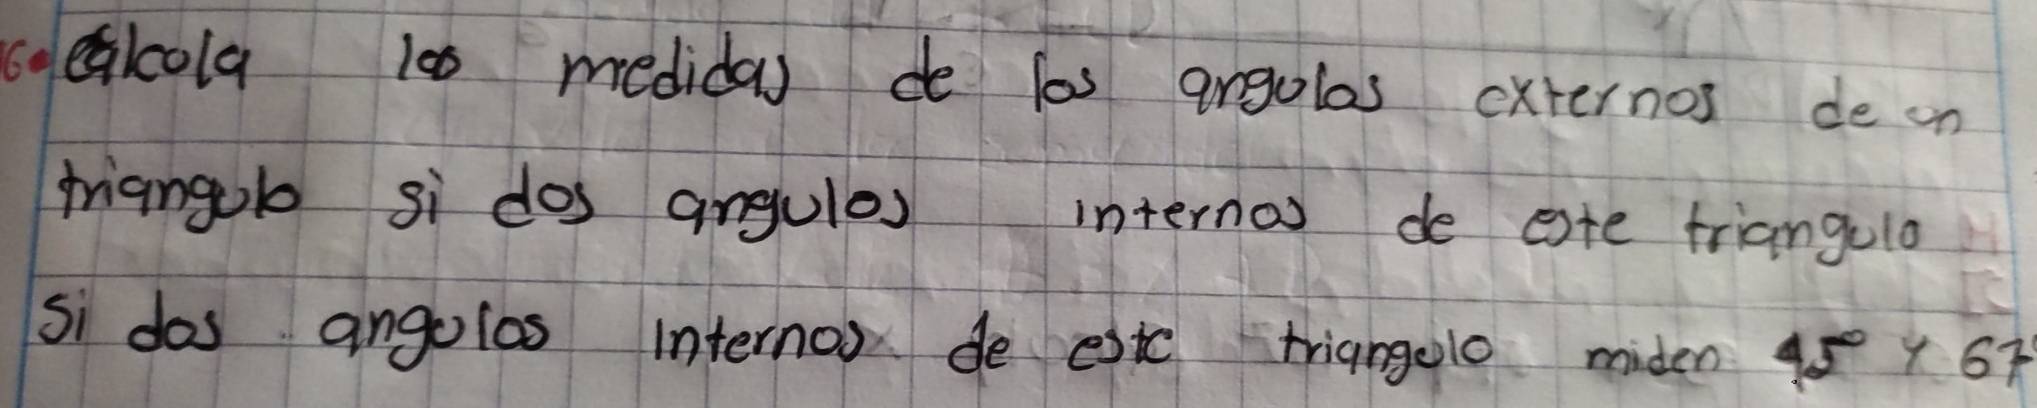 16. calcola las medidas de los angulos externos de un
triangulo si dos angulos internos de este triangulo
si dos angulos internos de este triangulo miden 45° y 67°